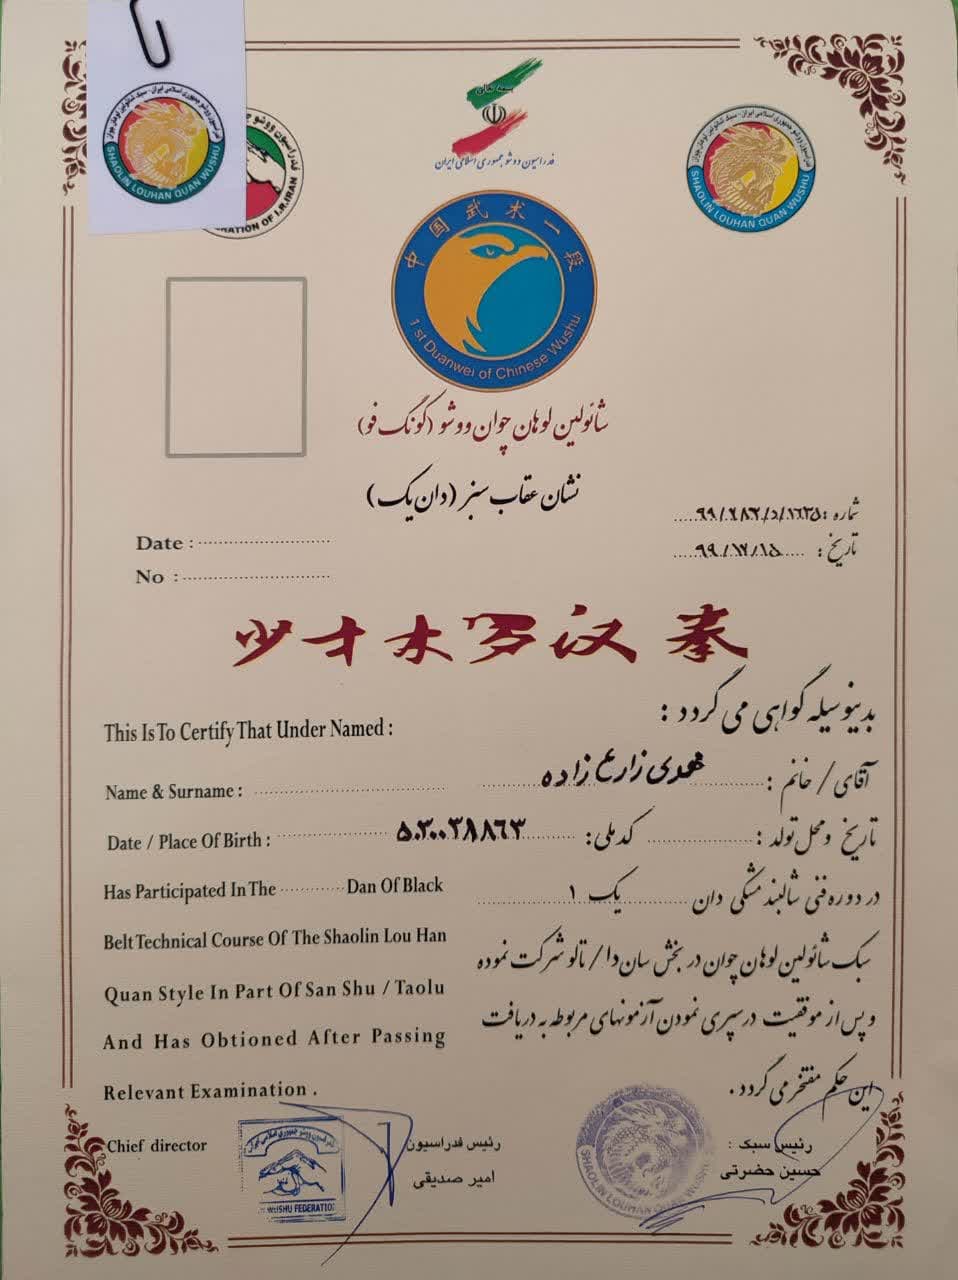 فدراسیون ووشو جمهوری اسلامی ایران - سبک شائولین لوهان چوان
SHAOLIN LOUHAN QUAN WUSHU
فدراسیون ووشو
RATION OF I.R.IRAN
بسمه تعالی
فدراسیون ووشو جمهوری اسلامی ایران
فدراسیون ووشو جمهوری اسلامی ایران - سبک شائولین لوهان چوان
SHAOLIN LOUHAN QUAN WUSHU
中国武术一段
1 st Duanwei of Chinese Wushu
شائولین لوهان چوان ووشو (کونگ فو)
نشان عقاب سبز (دان یک)
شماره :
Date :
تاریخ : ۹۹/۱۲/۱۵
No :
少才木罗汉拳
بدینوسیله گواهی می گردد :
This Is To Certify That Under Named :
آقای / خانم : مهدی زارع زاده
Name & Surname :
تاریخ و محل تولد : کد ملی:
Date / Place Of Birth :
در دوره فنی شالبند مشکی دان یک ۱
Has Participated In The Dan Of Black
سبک شائولین لوهان چوان در بخش سان دا / تالو شرکت نموده
Belt Technical Course Of The Shaolin Lou Han
و پس از موفقیت در سپری نمودن آزمونهای مربوطه به دریافت
Quan Style In Part Of San Shu / Taolu
And Has Obtioned After Passing
این حکم مفتخر می گردد .
Relevant Examination .
رئیس سبک :
حسین حضرتی
رئیس فدراسیون
امیر صدیقی
Chief director
فدراسیون ووشو جمهوری اسلامی ایران
WUSHU FEDERATION
SHAOLIN LOUHAN QUAN WUSHU